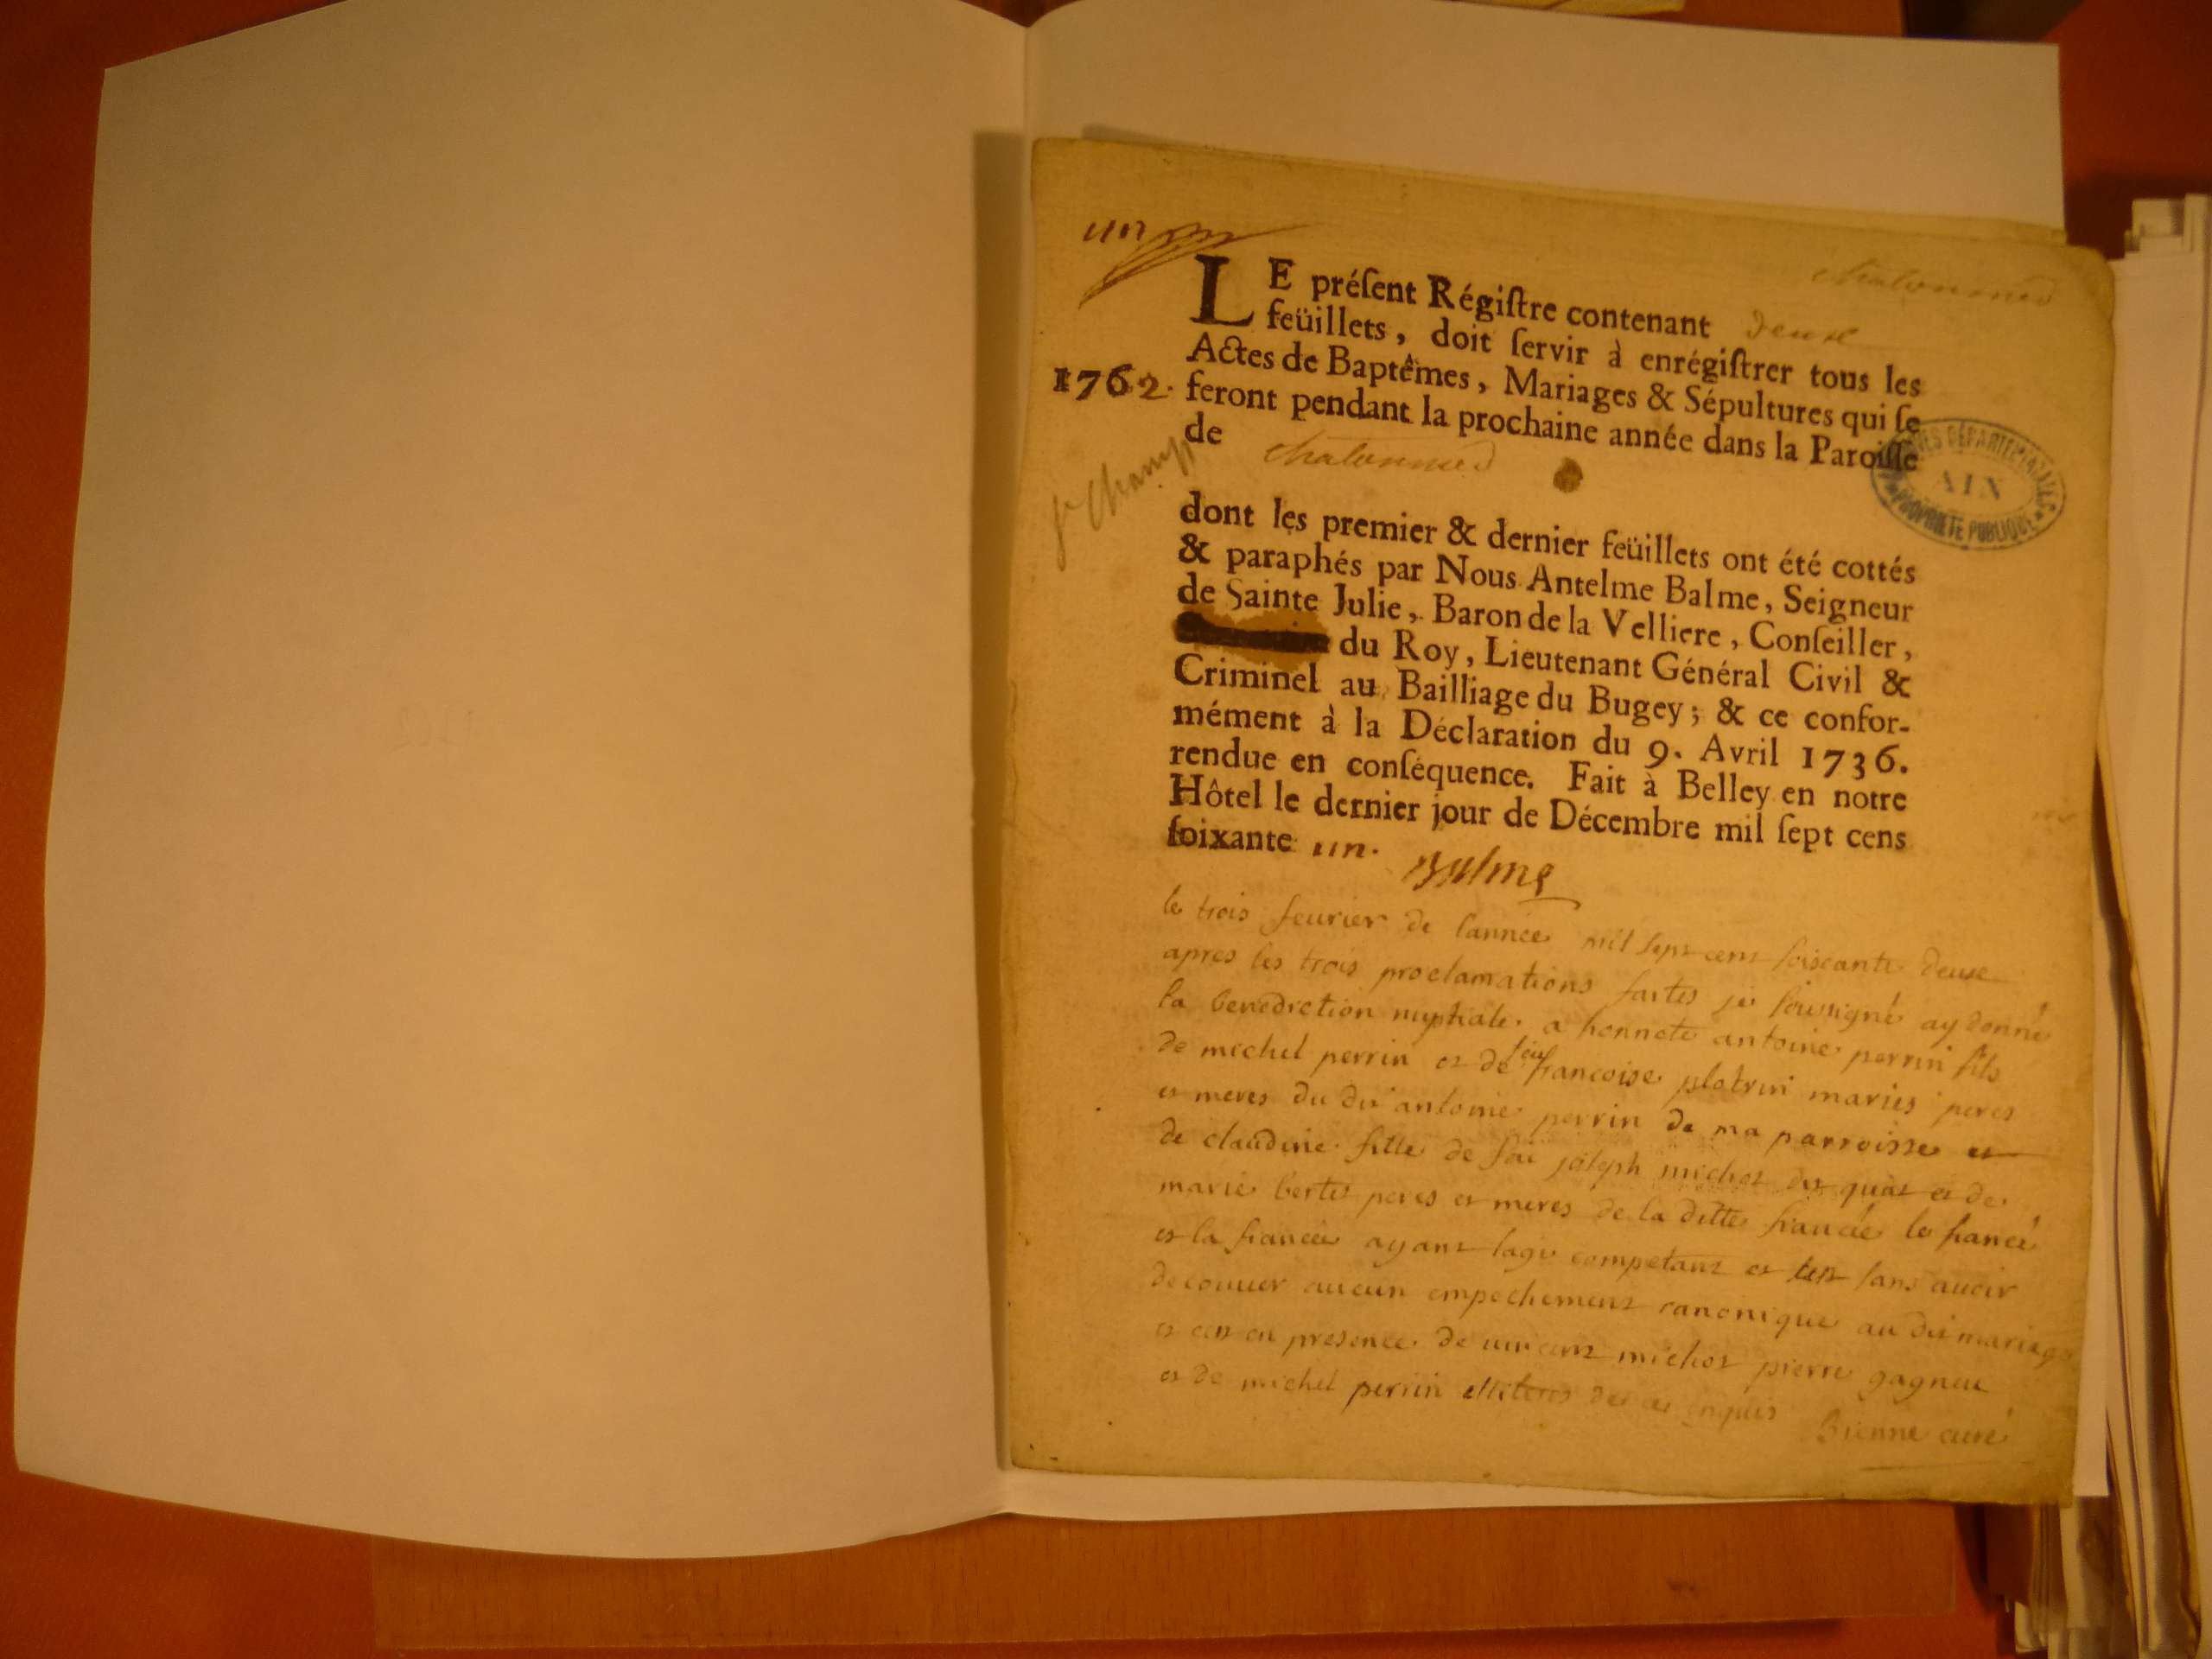 un
chatonnod
LE préſent Régiſtre contenant deux
feüillets, doit ſervir à enrégiſtrer tous les
Actes de Baptêmes, Mariages & Sépultures qui ſe
1762. feront pendant la prochaine année dans la Paroiſſe
de chatonnod
St Champ
ARCHIVES DÉPARTEMENTALES
AIN
PROPRIÉTÉ PUBLIQUE
dont les premier & dernier feüillets ont été cottés
& paraphés par Nous Antelme Balme, Seigneur
de Sainte Julie, Baron de la Velliere, Conſeiller,
du Roy, Lieutenant Général Civil &
Criminel au Bailliage du Bugey; & ce confor-
mément à la Déclaration du 9. Avril 1736.
rendue en conſéquence. Fait à Belley en notre
Hôtel le dernier jour de Décembre mil ſept cens
ſoixante un. Balme
le trois feurier de l'année mil sept cent soixante deux
apres les trois proclamations faites je soussigné ay donné
la benediction nuptiale a honnete antoine perrin fils
de michel perrin et de feu francoise platrin maries peres
et meres du dit antoine perrin de ma parroisse et
de claudine fille de feu joseph michot et de
marie berte peres et meres de la ditte fiancée le fiancé
et la fiancée ayant lage competant et sans auoir
decouuer aucun empechement canonique au dit mariage
et ce en presence de uincent michot pierre gagneu
et de michel perrin Bienne curé